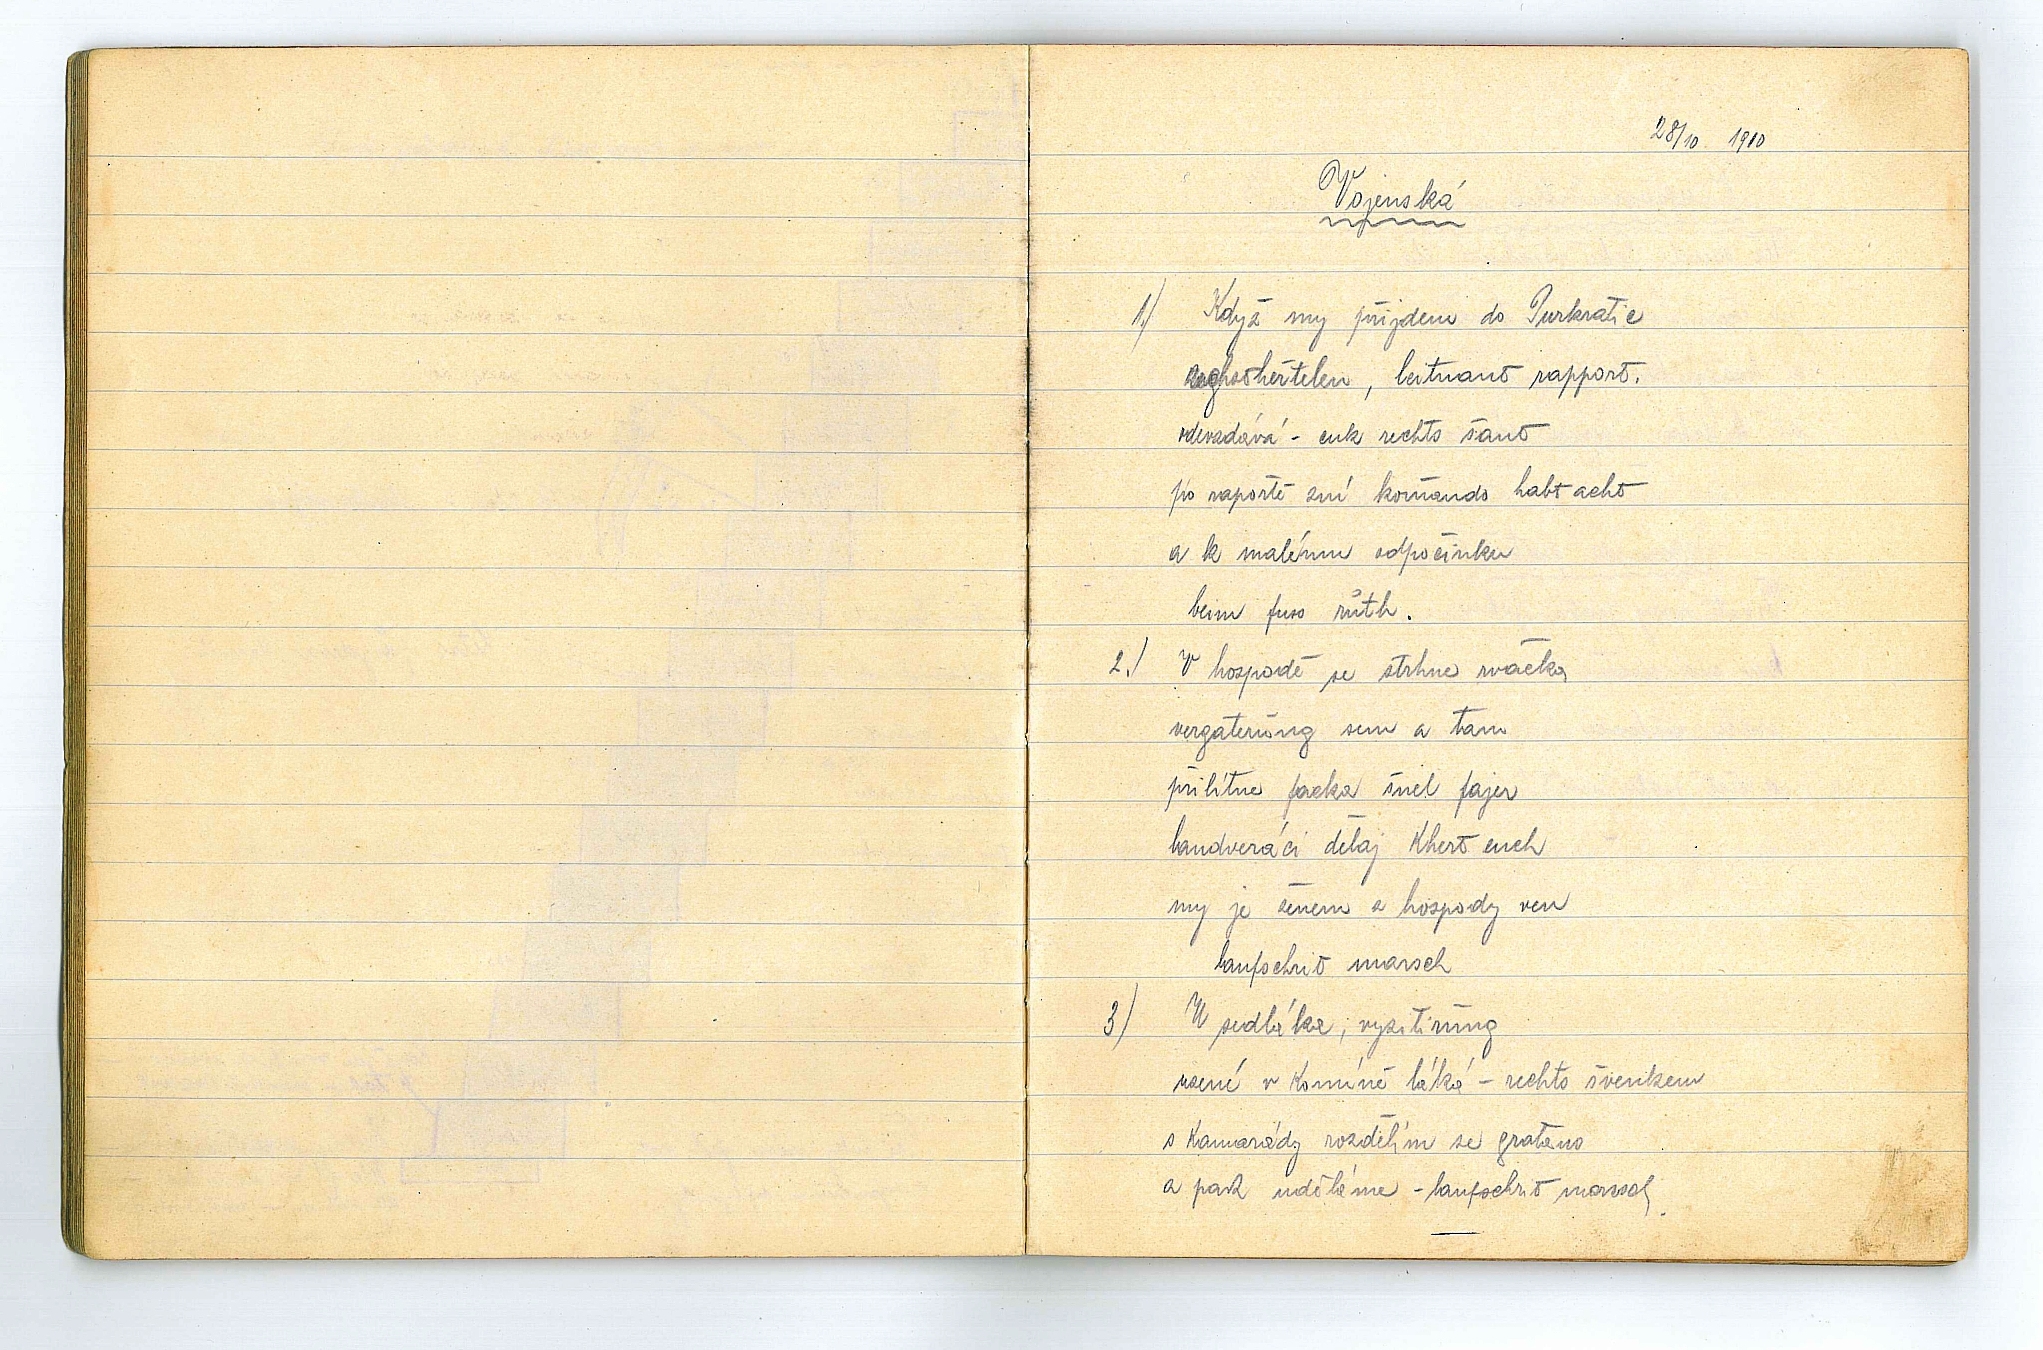 28/10 1910
Vojenská
1.) Když my přijdem do Purkratic
, leitnant rapport.
odevzdává - cuk rechts šaut
po raportě zní komando habt acht
a k malému odpočinku
beim fuss růth.
2.) V hospodě se strhne rvačka
vergaterung sem a tam
přilítne facka šnel fajer
landveráci dělaj Khert euch
my je ženem z hospody ven
laufschrit marsch
3) U sedláka, vyzitirung
uzené v Komíně láká - rechts švenken
s Kamarády rozdělím se gratans
a pak uděláme - laufschrit marsch.